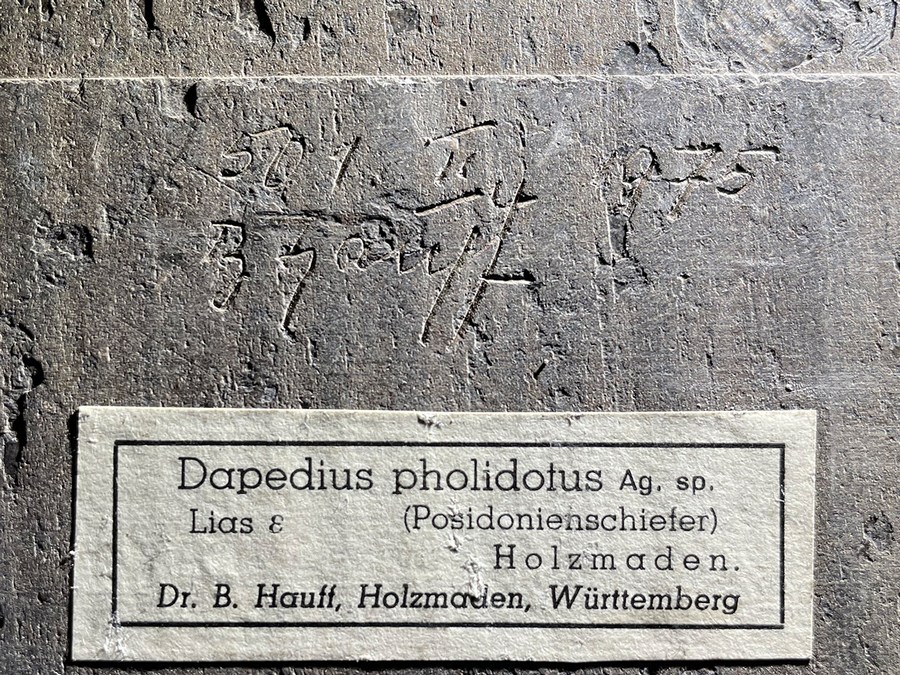 II 1975
B Hauff
Dapedius pholidotus Ag. sp.
Lias ε (Posidonienschiefer)
Holzmaden.
Dr. B. Hauff, Holzmaden, Württemberg